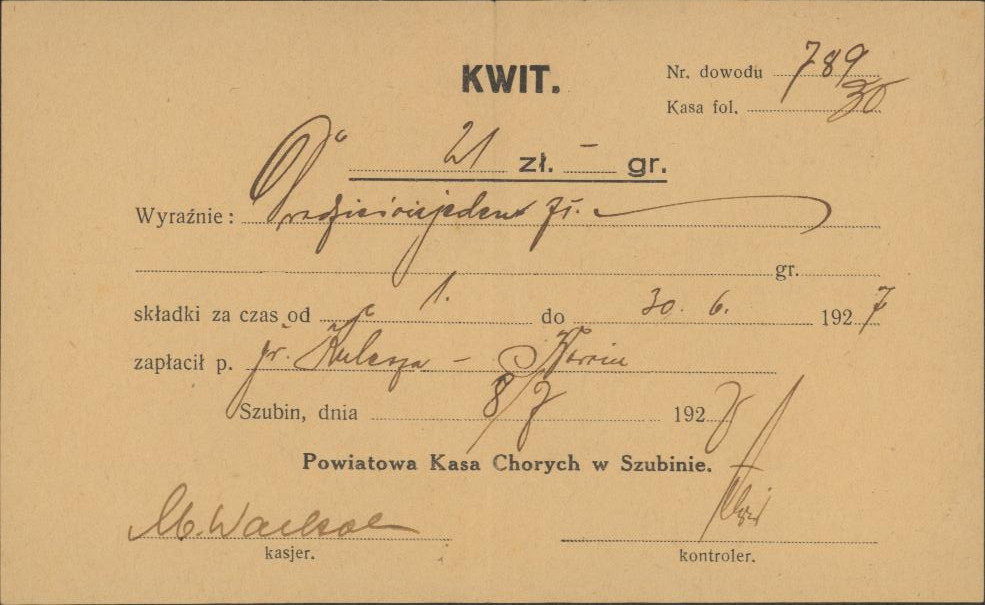 KWIT.
Nr. dowodu 789
Kasa fol. 30
21 zł. — gr.
Wyraźnie: Dwadzieściajeden zł.
gr.
składki za czas od 1. do 30. 6. 1927
zapłacił p. Kulesza – Kcynia
Szubin, dnia 8/7 1927
Powiatowa Kasa Chorych w Szubinie.
M. Wachol
kasjer.
kontroler.